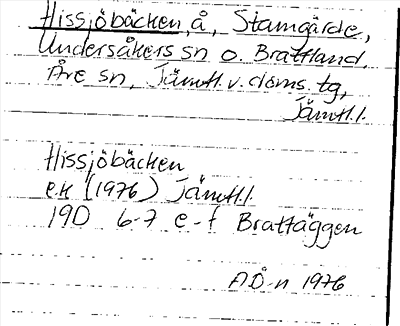 Hissjöbäcken, å, Stamgärde,
Undersåkers sn o. Brattland,
Åre sn, Jämtl. v. doms. tg,
Jämtl. l.
Hissjöbäcken
ek (1976) Jämtl. l.
19D 6-7 e-f Brattäggen
AÅ-n 1976